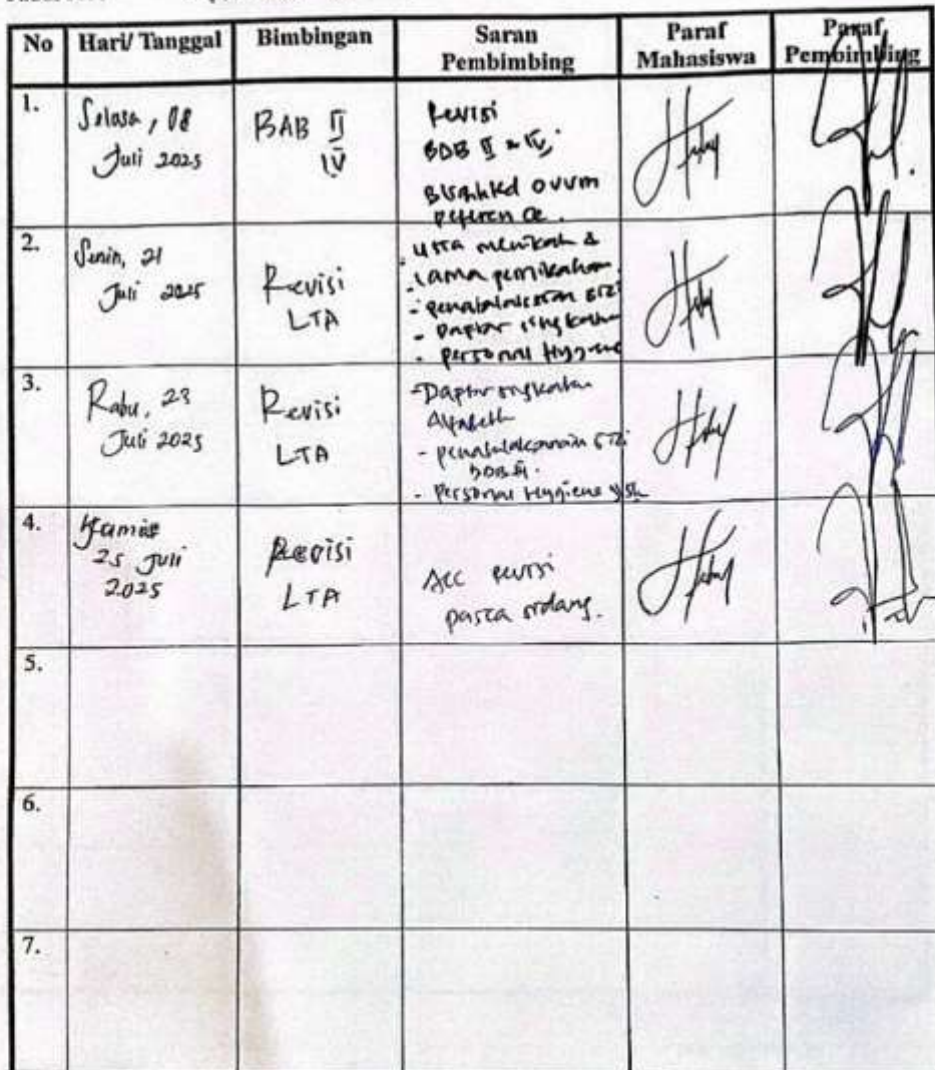 No Hari/ Tanggal Bimbingan Saran Pembimbing Paraf Mahasiswa Paraf Pembimbing
1. Selasa, 08
Juli 2025
BAB II
IV
Revisi
BAB II & IV
ovum
2. Senin, 21
Juli 2025
Revisi
LTA
- usia menikah &
lama pernikahan
- penatalaksanaan gizi
- Daptar singkatan
- personal Hygiene
3. Rabu, 23
Juli 2025
Revisi
LTA
- Daptar singkatan
- penatalaksanaan gizi
BAB II.
- Personal Hygiene
4. Kamis
25 Juli
2025
Revisi
LTA
Acc revisi
pasca sidang.
5.
6.
7.